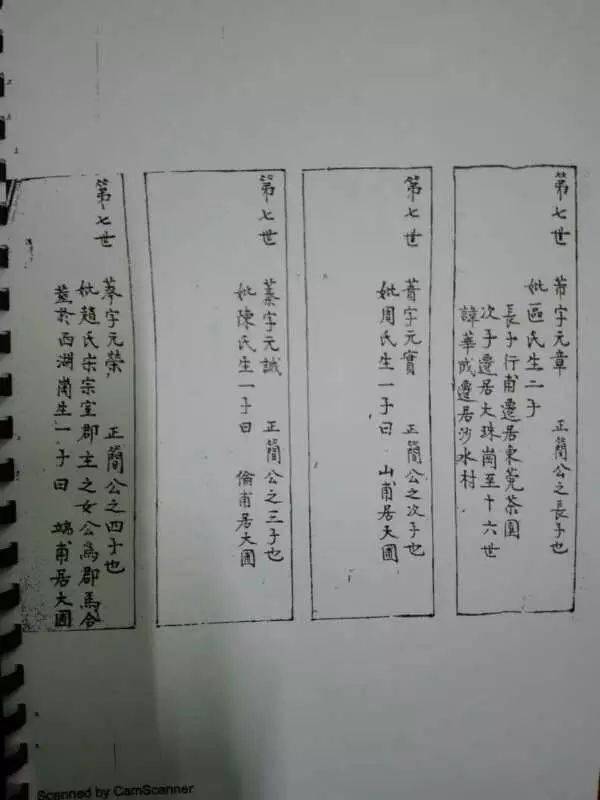 第七世 芾字元章 正簡公之長子也
妣區氏生二子
長子行甫遷居東莞茶園
次子遷居大珠崗至十六世
諱華成遷居沙水村
第七世 蓍字元實 正簡公之次子也
妣周氏生一子曰 山甫居大圃
第七世 蓁字元誠 正簡公之三子也
妣陳氏生一子曰 倫甫居大圃
第七世 字元榮 正簡公之四子也
妣趙氏宋宗室郡主之女公為郡馬合
葬於西湖崗生一子曰 端甫居大圃
Scanned by CamScanner